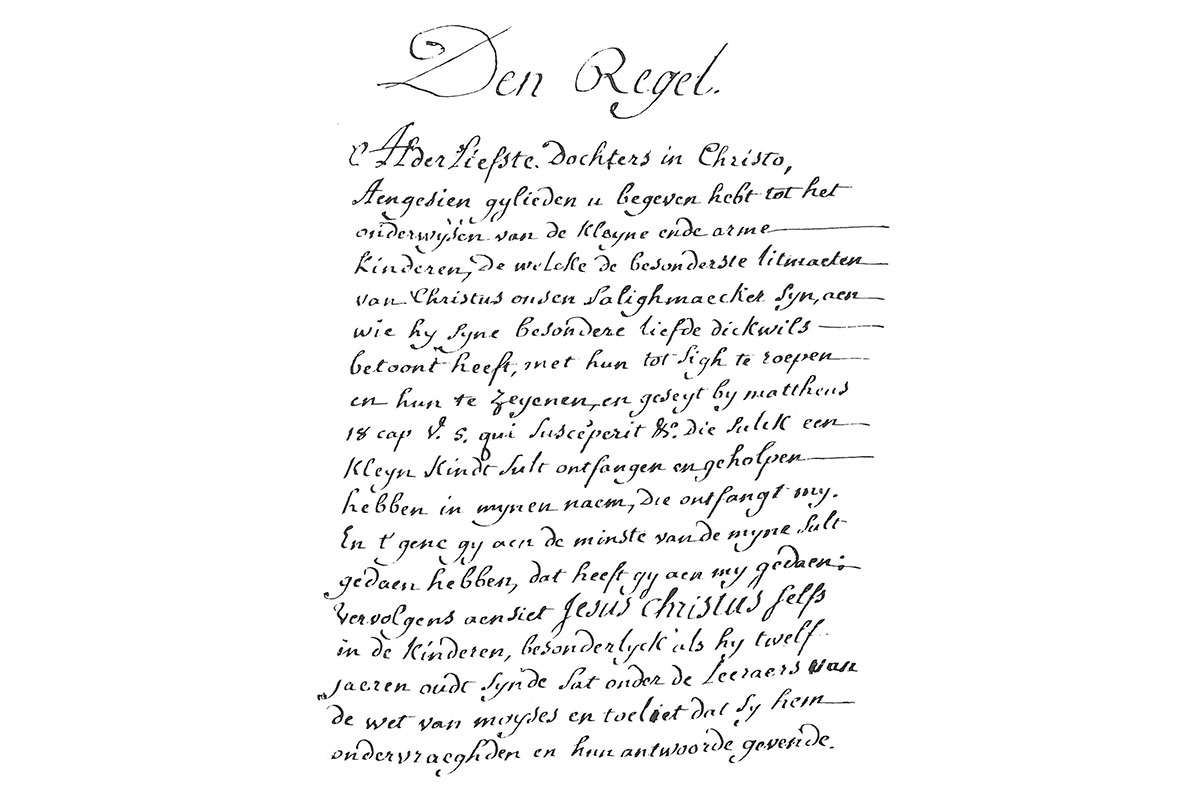 Den Regel.
Alderliefste Dochters in Christo,
Aengesien gylieden u begeven hebt tot het
onderwijsen van de kleyne ende arme
kinderen, de welcke de besonderste litmaeten
van Christus onsen Salighmaecker syn, aen
wie hy syne besondere liefde dickwils
betoont heeft, met hun tot sigh te roepen
en hun te zeyenen, en geseyt by mattheus
18 cap V. 5. qui susceperit &c. Die sulck een
kleyn kindt sult ontfangen en geholpen
hebben in mynen naem, die ontfangt my.
En t'gene gy aen de minste van de myne sult
gedaen hebben, dat heeft gy aen my gedaen;
vervolgens aensiet Jesus Christus selfs
in de kinderen, besonderlyck als hy twelf
jaeren oudt synde sat onder de Leeraers van
de wet van moyses en toeliet dat sy hem
ondervraeghden en hun antwoorde gevende.